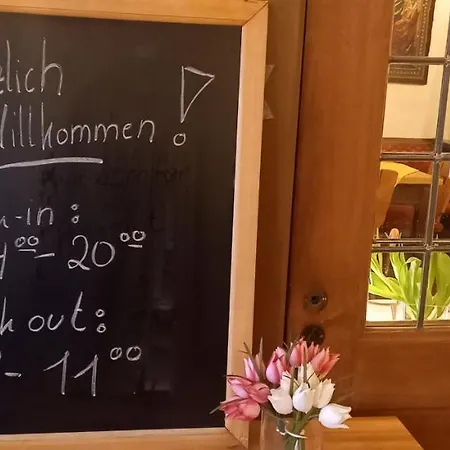 zlich
Willkommen!
k-in:
4⁰⁰ - 20⁰⁰
k out:
- 11⁰⁰